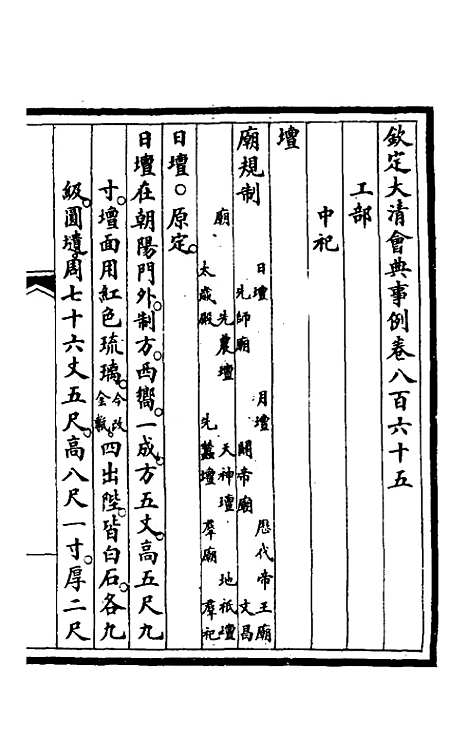 欽定大清會典事例卷八百六十五
工部
中祀
壇
廟規制
日壇 月壇 厯代帝王廟
先師廟 關帝廟 文昌
廟 先農壇 天神壇 地祇壇
太歲殿 先蠶壇 羣廟 羣祀
日壇○原定。
日壇在朝陽門外。制方。西嚮。一成。方五丈。高五尺九
寸。壇面用紅色琉璃。今改金甎。四出陛。皆白石。各九
級。圓壝。周七十六丈五尺。高八尺一寸。厚二尺